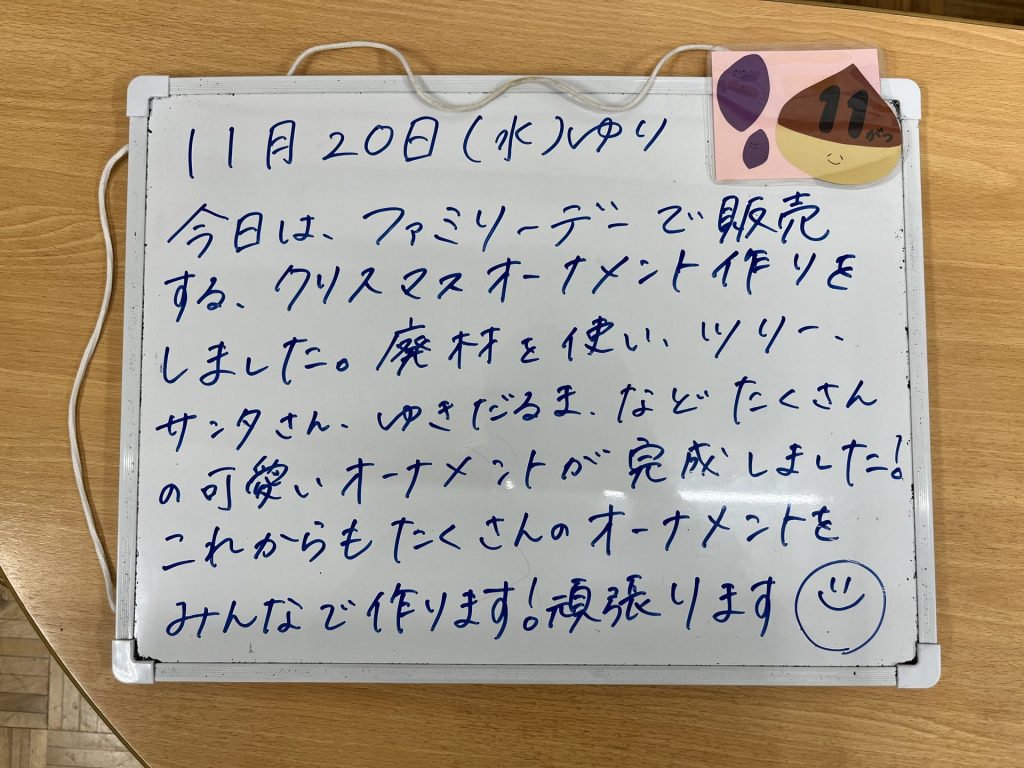 11月20日(水)ゆり
11
がつ
今日は、ファミリーデーで販売
する、クリスマスオーナメント作りを
しました。廃材を使い、ツリー、
サンタさん、ゆきだるま、などたくさん
の可愛いオーナメントが完成しました!
これからもたくさんのオーナメントを
みんなで作ります!頑張ります